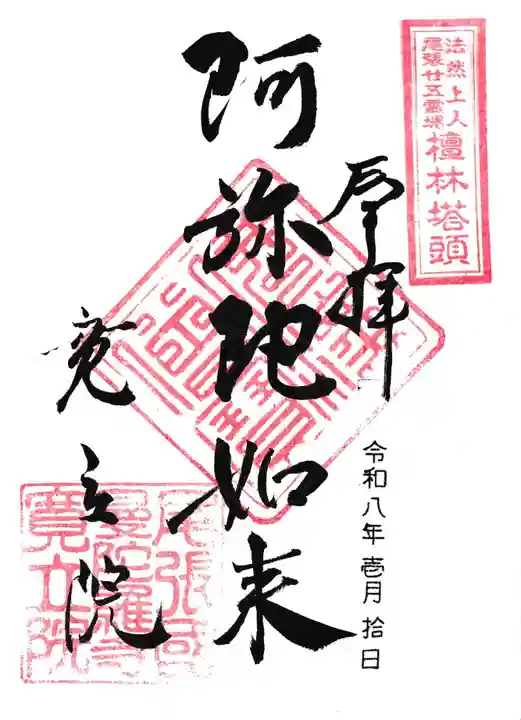 法然上人
尾張廿五霊場
檀林塔頭
奉拝
阿弥陀如来
令和八年 壱月 拾日
寛立院
尾張国
曼陀羅寺
寛立院